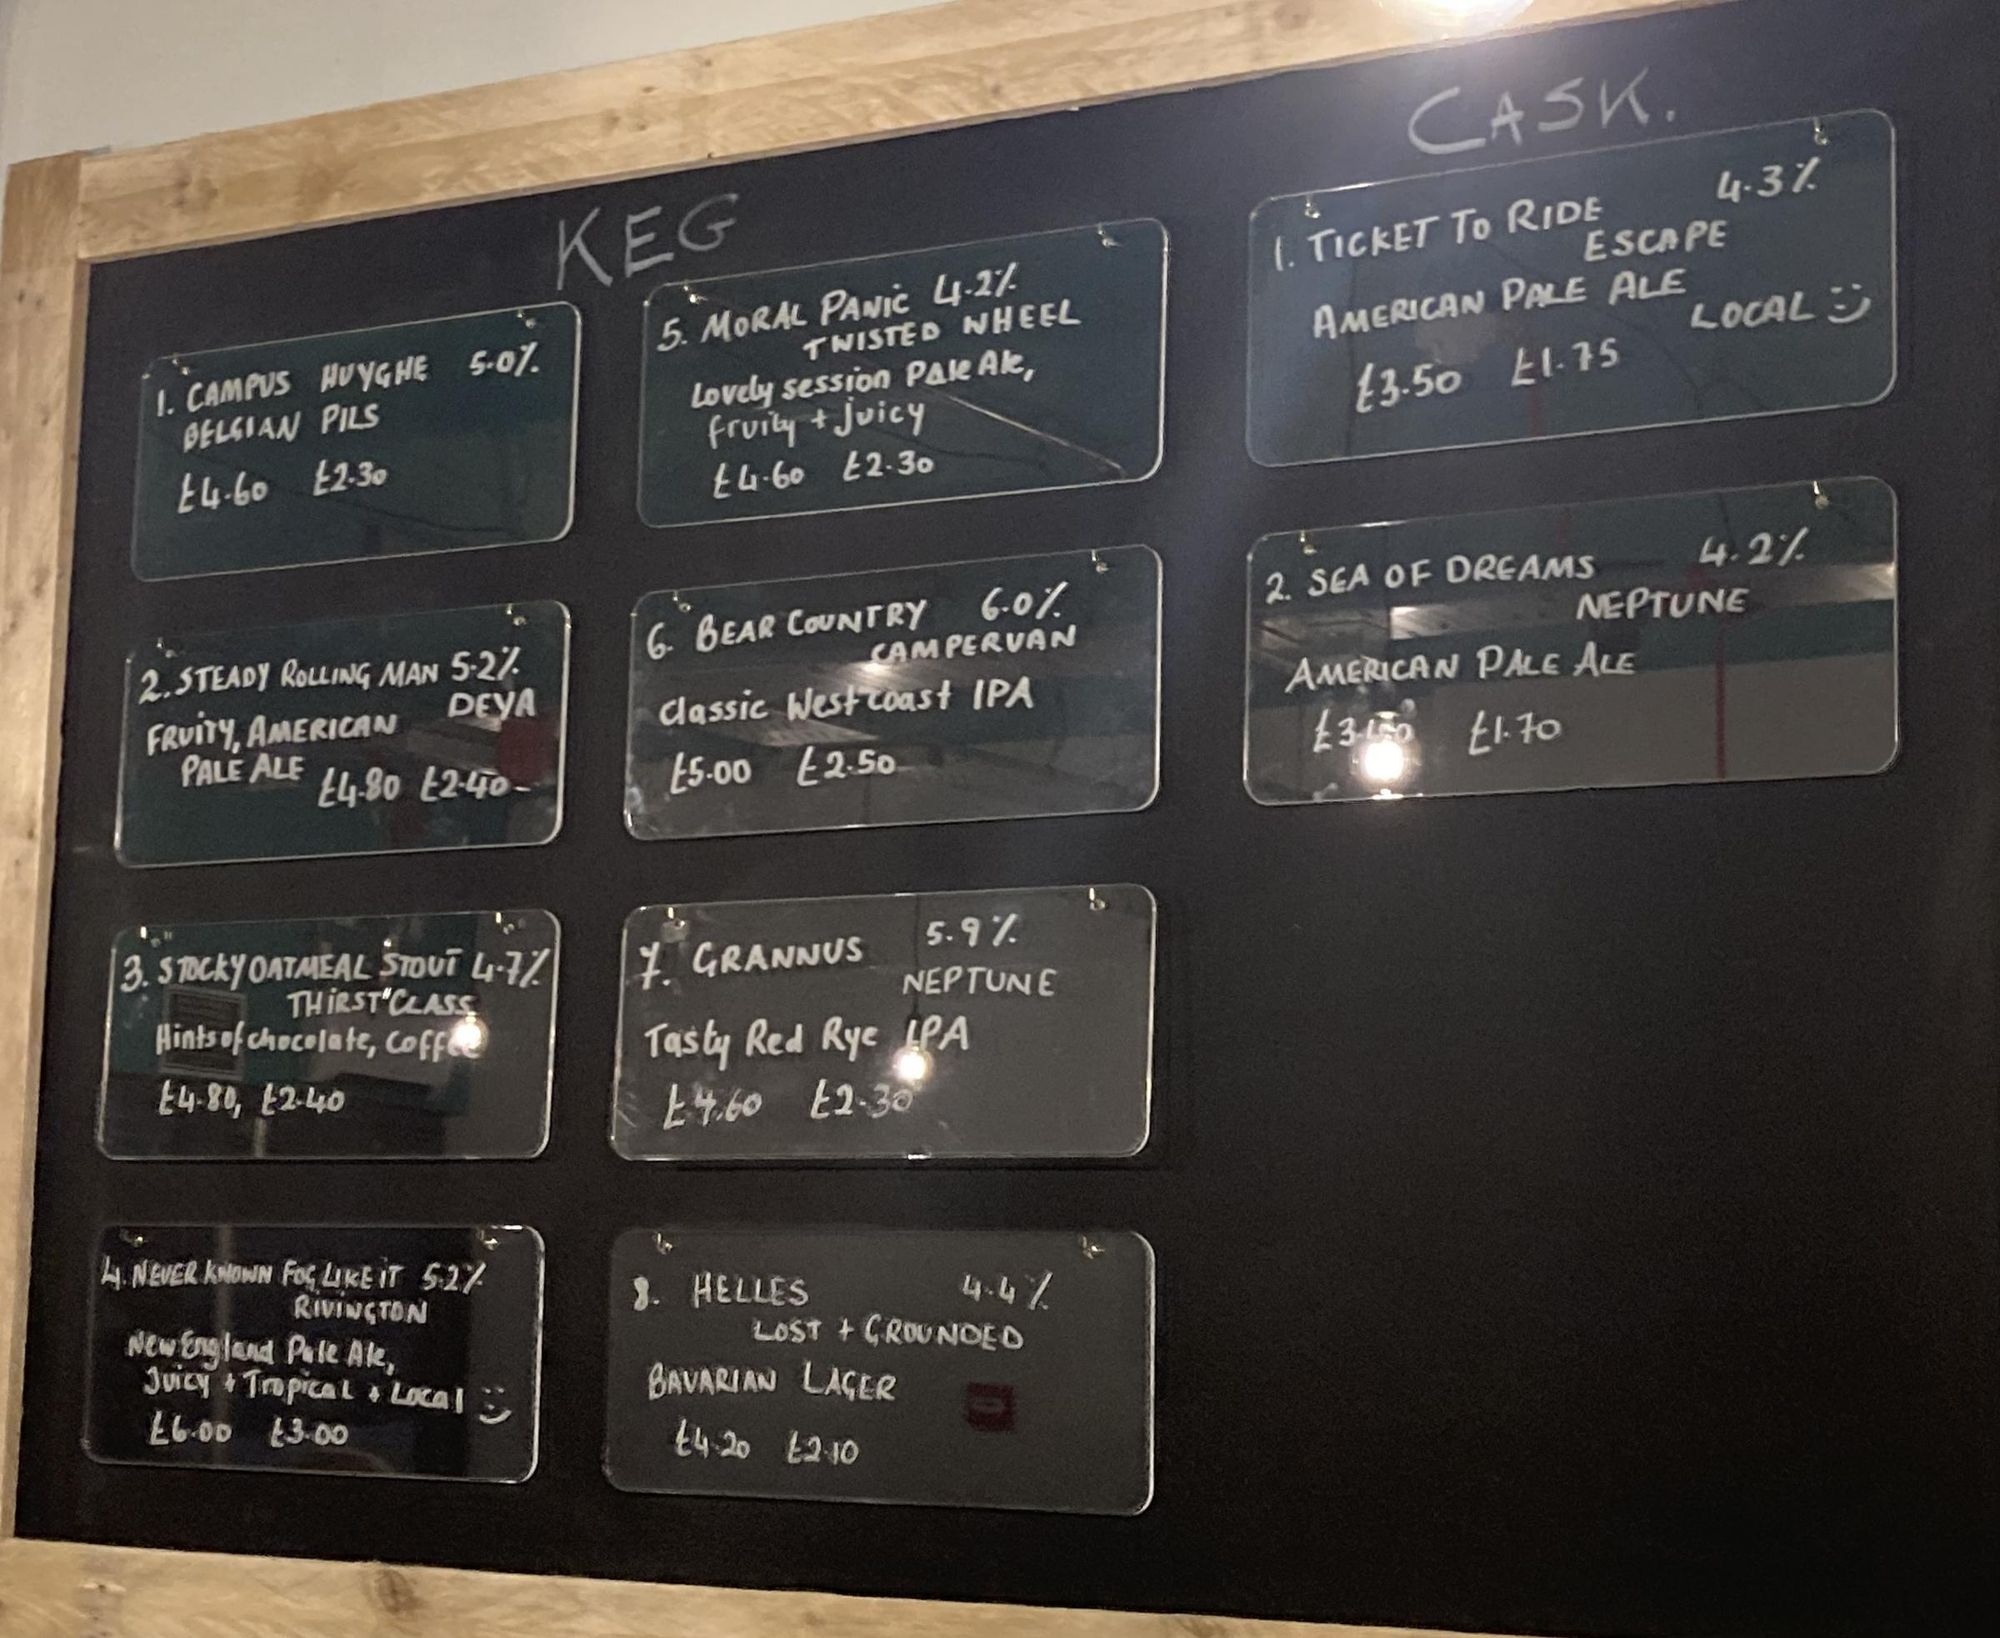 KEG
1. CAMPUS HUYGHE 5.0%
BELGIAN PILS
£4.60 £2.30
2. STEADY ROLLING MAN 5.2%
DEYA
FRUITY, AMERICAN
PALE ALE £4.80 £2.40
3. STOCKY OATMEAL STOUT 4.7%
THIRST CLASS
Hints of chocolate, coffee
£4.80, £2.40
4. NEVER KNOWN FOG LIKE IT 5.2%
RIVINGTON
New England Pale Ale,
Juicy + Tropical + Local
£6.00 £3.00
5. MORAL PANIC 4.2%
TWISTED WHEEL
Lovely session Pale Ale,
fruity + juicy
£4.60 £2.30
6. BEAR COUNTRY 6.0%
CAMPERVAN
Classic West coast IPA
£5.00 £2.50
7. GRANNUS 5.9%
NEPTUNE
Tasty Red Rye IPA
£4.60 £2.30
8. HELLES 4.4%
LOST + GROUNDED
BAVARIAN LAGER
£4.20 £2.10
CASK.
1. TICKET TO RIDE 4.3%
ESCAPE
AMERICAN PALE ALE
LOCAL
£3.50 £1.75
2. SEA OF DREAMS 4.2%
NEPTUNE
AMERICAN PALE ALE
£1.70